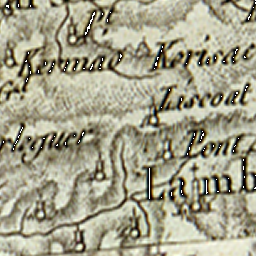 Pt
Kermac
Kerivac
Liscoat
rleguer
Pont
Lamb